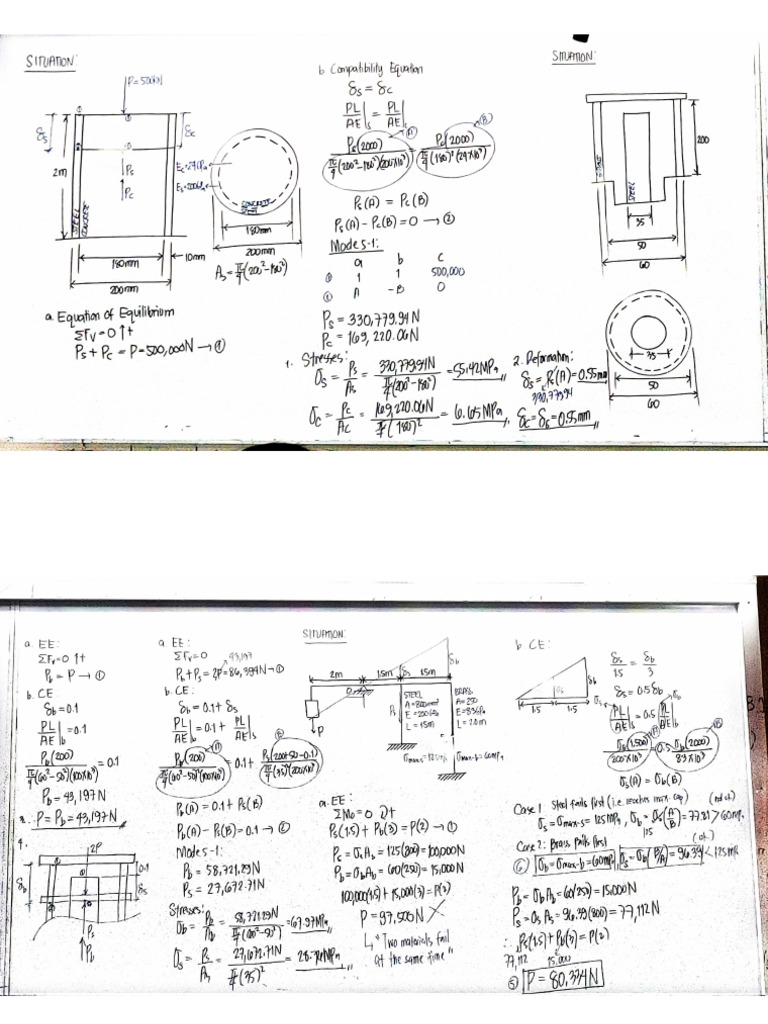 SITUATION:
P=500kN
δs
δc
2m
Ps
Pc
STEEL
CONCRETE
180mm
10mm
200mm
Ec=29GPa
Es=200GPa
CONCRETE
STEEL
180mm
200mm
As = π/4(200²-180²)
a. Equation of Equilibrium
ΣFv=0 ↑+
Ps+Pc = P=500,000N → ①
b. Compatibility Equation
δs = δc
PL/AE|s = PL/AE|c
Ps(2000)/π/4(200²-180²)(200x10³) = Pc(2000)/π/4(180)²(29x10³)
Ⓐ Ⓑ
Ps(A) = Pc(B)
Ps(A)-Pc(B)=0 → ②
Mode 5-1:
a b c
① 1 1 500,000
② A -B 0
Ps = 330,779.94N
Pc = 169,220.06N
1. Stresses:
σs = Ps/As = 330,779.94N/π/4(200²-180²) = 55.42MPa
σc = Pc/Ac = 169,220.06N/π/4(180)² = 6.65MPa
2. Deformation:
δs = Ps(A) = 0.55mm
330,779.94
δc=δs=0.55mm
SITUATION:
200
STEEL
35
50
60
35
50
60
a. EE:
ΣFv=0 ↑+
Pb = P → ①
b. CE:
δb = 0.1
PL/AE|b = 0.1
Pb(200)/π/4(60²-50²)(100x10³) = 0.1
Pb = 43,197N
3. P=Pb=43,197N
4.
2P
0.1
δb
δs
Ps
Pb
a. EE:
ΣFv=0 43,197
Pb+Ps = 2P = 86,394N → ①
b. CE:
δb = 0.1+δs
PL/AE|b = 0.1 + PL/AE|s
Pb(200)/π/4(60²-50²)(100x10³) = 0.1 + Ps(200+50-0.1)/π/4(35)²(200x10³)
Ⓐ Ⓑ
Pb(A) = 0.1+Ps(B)
Pb(A)-Ps(B)=0.1 → ②
Mode 5-1:
Pb = 58,721.29N
Ps = 27,672.71N
Stresses:
σb = Pb/Ab = 58,721.29N/π/4(60²-50²) = 67.97MPa
σs = Ps/As = 27,672.71N/π/4(35)² = 28.76MPa
SITUATION:
2m
1.5m
1.5m
δs
δb
O
P
Ps
STEEL
A=800mm²
E=200GPa
L=1.5m
BRASS
A=250
E=83GPa
L=2.0m
σmax-s=125MPa
σmax-b=60MPa
a. EE:
ΣMo=0
Ps(1.5)+Pb(3)=P(2) → ①
Ps=σsAs=125(800)=100,000N
Pb=σbAb=60(250)=15,000N
100,000(1.5)+15,000(3)=P(2)
P=97,500N X
"Two materials fail
at the same time"
b. CE:
1.5
1.5
δs
δb
δs/1.5 = δb/3
δs=0.5δb
PL/AE|s = 0.5 PL/AE|b
σs
σb
σs(1,500)/200x10³ = 0.5 σb(2000)/83x10³
Ⓐ Ⓑ
σs(A) = σb(B)
Case 1: Steel fails first (i.e. reaches max. cap) (not ok)
σs=σmax-s=125MPa, σb=σs(A/B)=77.81>60MPa
125
Case 2: Brass fails first (ok)
⑥ σb=σmax-b=60MPa, σs=σb(B/A)=96.39<125MPa
Pb=σbAb=60(250)=15,000N
Ps=σsAs=96.39(800)=77,112N
∴ Ps(1.5)+Pb(3)=P(2)
77,112 15,000
⑤ P=80,334N